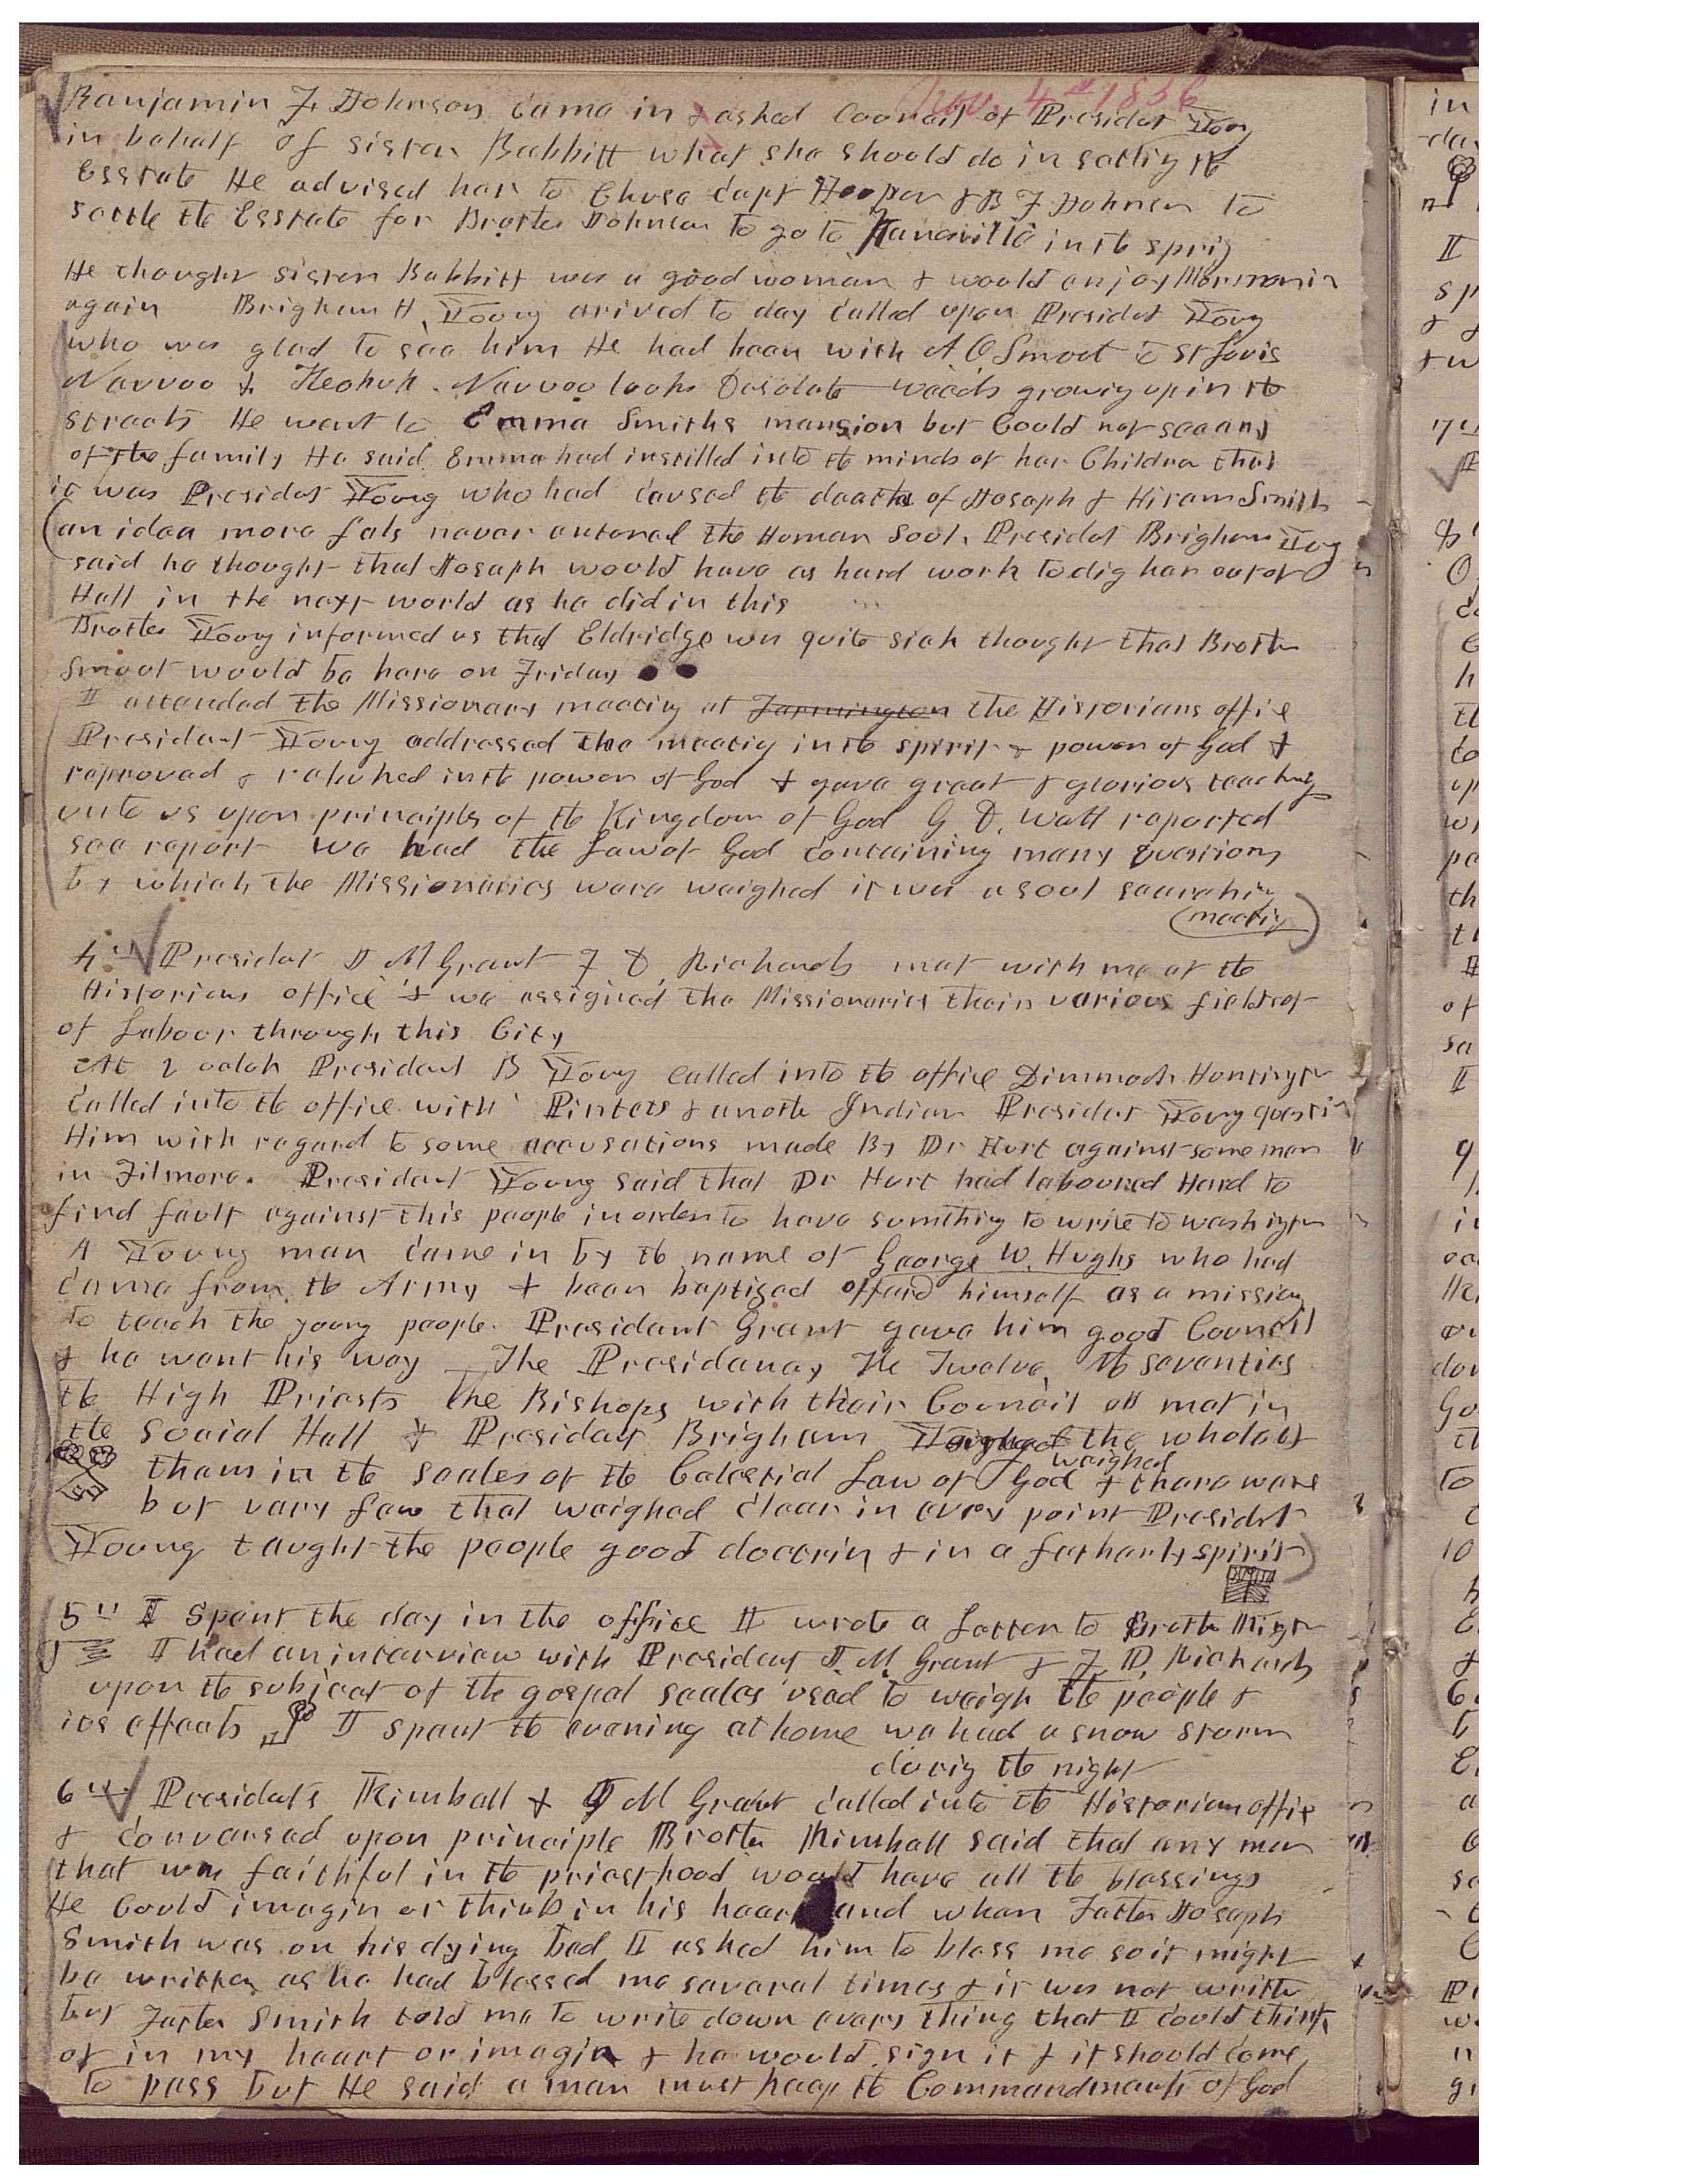 Nov. 4th 1856
Benjamin F. Johnson came in & asked Council of Presidet Young
in behalf of sister Babbitt what she should do in setlig the
Esstate He advised her to Chuse Capt Hooper & B F Johnson to
settle the Esstate for Brother Johnson to go to Kanesville in the sprig
He thought sister Babbitt was a good woman & would enjoy Mormonism
again Brigham H. Young arived to day called upon Presidet Young
who was glad to see him He had been with A O Smoot to St Louis
Nauvoo & Keokuk. Nauvoo looks Desolate weeds growig up in the
streets He went to Emma Smiths mansion but Could not see any
of the family He said Emma had instilled into the minds of her Children that
it was Presidet Young who had caused the death of Joseph & Hiram Smith
(an idea more fals never entered the Human Soul. Presidet Brigham Young
said he thought that Joseph would have as hard work to dig her out of
Hell in the next world as he did in this
Brother Young informed us that Eldridge was quite sick thought that Brother
Smoot would be here on Friday
I attended the Missionary meetig at Farmington the Historians office
President Young addressed the meetig in the spirit & power of God &
reproved & rebuked in the power of God & gave great & glorious teaching
unto us upon principles of the Kingdom of God G D. Watt reported
see report we had the Law of God containing many questions
by which the Missionaries were weighed it was a soul searchin
(meetig)
4th Presidet J M Grant F D Richards met with me at the
Historians office & we assigned the Missionaries their various fields of
of Labour through this City
At 2 oclok President B Young called into the office Dimmock Huntington
called into the office with Pintets & anoth Indian Presidet Young questin
Him with regard to some accusations made By Dr Hurt against some men
in Filmore. President Young said that Dr Hurt had laboured Hard to
find fault against this people in order to have somthig to write to washigtn
A Young man came in by the name of George W. Hughs who had
came from the Army & been baptized offerd himself as a missiony
to teach the young people. President Grant gave him good Council
& he went his way The Presidency The Twelve, the seventies
the High Priests The Bishops with their Council all met in
the Social Hall & Presidet Brigham Young the whole of
weighed
them in the scales of the Celestial Law of God & there were
but very few that weighed clear in every point Presidet
Young taught the people good doctrin & in a fatherly spirit)
5th I Spent the day in the office I wrote a Letter to
I had an interview with Presidet J. M. Grant & F. D. Richards
upon the subject of the gospel scales used to weigh the people &
its effects I spent the evening at home we had a snow storm
durig the night
6th Presidets Kimball & J M Grant called into the Historian office
& conversed upon principle Brother Kimball said that any man
that was faithful in the priesthood would have all the blessings
He Could imagin or think in his heart and when Father Joseph
Smith was on his dying bed I asked him to bless me so it might
be written as he had blessed me several times & it was not written
but Father Smith told me to write down every thing that I could think
of in my heart or imagin & he would sign it & it should come
to pass but He said a man must keep the Commandments of God